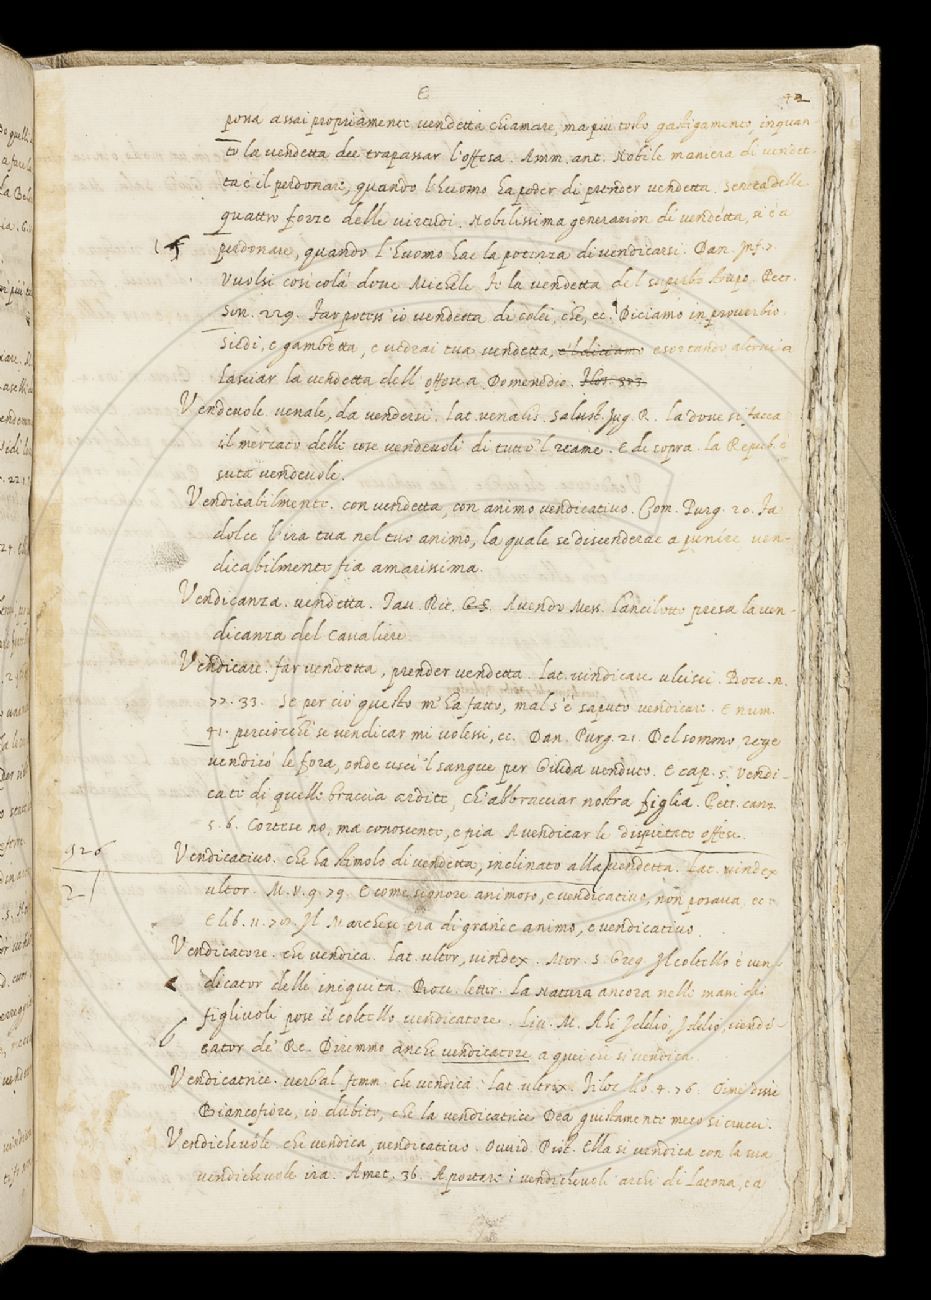 E
42
poria assai propriamente vendetta chiamare, ma più tosto gastigamento, inquan-
to la vendetta dee trapassar l'offesa. Amm. ant. Nobile maniera di vendet-
ta è il perdonare, quando l'huomo ha poder di prender vendetta. Seneca delle
quattro forze delle virtudi. Nobilissima generazion di vendetta, si è a
perdonare, quando l'huomo hae la potenza di vendicarsi. Dan. Inf. 7.
Vuolsi così colà dove Michele Fe la vendetta del superbo strupo. Petr.
Son. 229. Far potess' io vendetta di colei, che, ec. Diciamo in proverbio.
Siedi, e gambetta, e vedrai tua vendetta, e'l diciamo esortando altrui a
lasciar la vendetta dell' offese a Domenedio. Flos. 323.
Vendevole. venale, da vendersi. Lat. venalis. Salust. Jug. R. la dove si facea
il mercato delle cose vendevoli di tutto 'l reame. E di sopra. la Repub. è
suta vendevole.
Vendicabilmente. con vendetta, con animo vendicativo. Com. Purg. 20. Fa
dolce l'ira tua nel tuo animo, la quale se discenderae a punire ven-
dicabilmente fia amarissima.
Vendicanza. vendetta. Tav. Rit. Avendo Mess. Lancilotto presa la ven-
dicanza del Cavaliere.
Vendicare. far vendetta, prender vendetta. Lat. vindicare ulcisci. Bocc. n.
77. 33. Se perciò questo m'ha fatto, mal s'è saputo vendicare. E num.
41. perciocchè se vendicar mi volessi, ec. Dan. Purg. 21. Del sommo rege
vendicò le fora, onde uscì 'l sangue per Giuda venduto. E cap. 5. Vendi-
cati di quelle braccia ardite, ch'abbracciar nostra figlia. Petr. canz.
5. 6. Cortese no, ma conoscente, e pia A vendicar le dispietate offese.
526
Vendicativo. che ha stimolo di vendetta, inclinato alla vendetta. Lat. vindex
2
ultor. M. V. 9. 79. E come signore animoso, e vendicativo, non posava, ec.
E lib. 11. Il Marchese era di grande animo, e vendicativo.
Vendicatore. che vendica. Lat. ultor, vindex. Mor. S. Greg. Il coltello è ven-
dicator delle iniquità. Bocc. letter. La Natura ancora nelli mani de'
figliuoli pose il coltello vendicatore. Liv. M. Ahi Idelio, Idelio, vendi-
6
cator de' Re. Diremmo anche vendicatore a quei che si vendica.
Vendicatrice. verbal. femm. che vendica. Lat. ultrix. Filoc. lib. 4. 76. Oimè disse
Biancofiore, io dubito, che la vendicatrice Dea giustamente meco si crucci.
Vendichevole. che vendica, vendicativo. Ovvid. Pist. Ella si vendica con la sua
vendichevole ira. Amet. 36. A portare i vendichevoli archi di Latona, ed